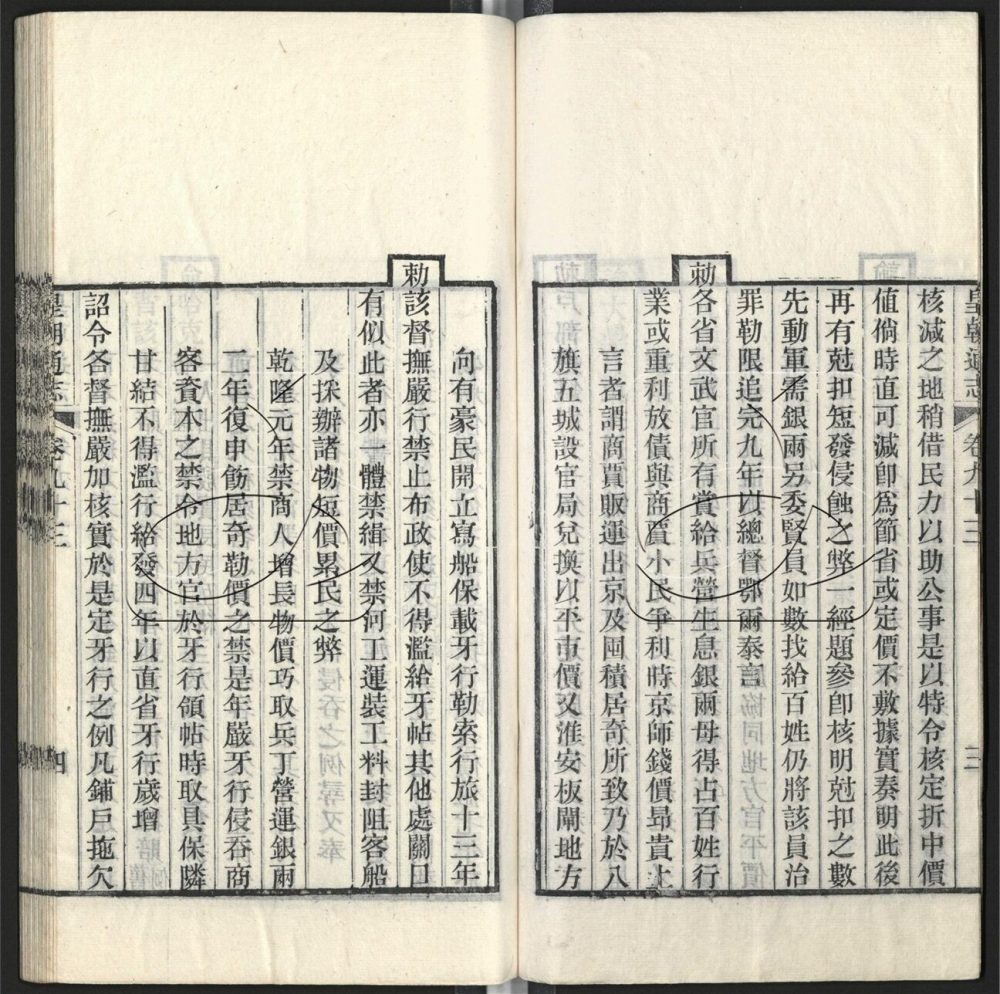 皇朝通志 卷九十三 三
核減之地稍借民力以助公事是以特令核定折中價
値倘時直可減卽爲節省或定價不敷據實奏明此後
再有尅扣短發侵蝕之弊一經題參卽核明尅扣之數
先動軍需銀兩另委賢員如數找給百姓仍將該員治
罪勒限追完九年以總督鄂爾泰言
勅各省文武官所有賞給兵營生息銀兩毋得占百姓行
業或重利放債與商賈小民爭利時京師錢價昻貴上
言者謂商賈販運出京及囤積居奇所致乃於八
旗五城設官局兌換以平市價又淮安板閘地方
向有豪民開立寫船保載牙行勒索行旅十三年
勅該督撫嚴行禁止布政使不得濫給牙帖其他處關口
有似此者亦一體禁緝又禁河工運裝工料封阻客船
及採辦諸物短價累民之弊
乾隆元年禁商人增長物價巧取兵丁營運銀兩
二年復申飭居奇勒價之禁是年嚴牙行侵吞商
客資本之禁令地方官於牙行領帖時取具保隣
甘結不得濫行給發四年以直省牙行歲增
詔令各督撫嚴加核實於是定牙行之例凡鋪戸拖欠
皇朝通志 卷九十三 四